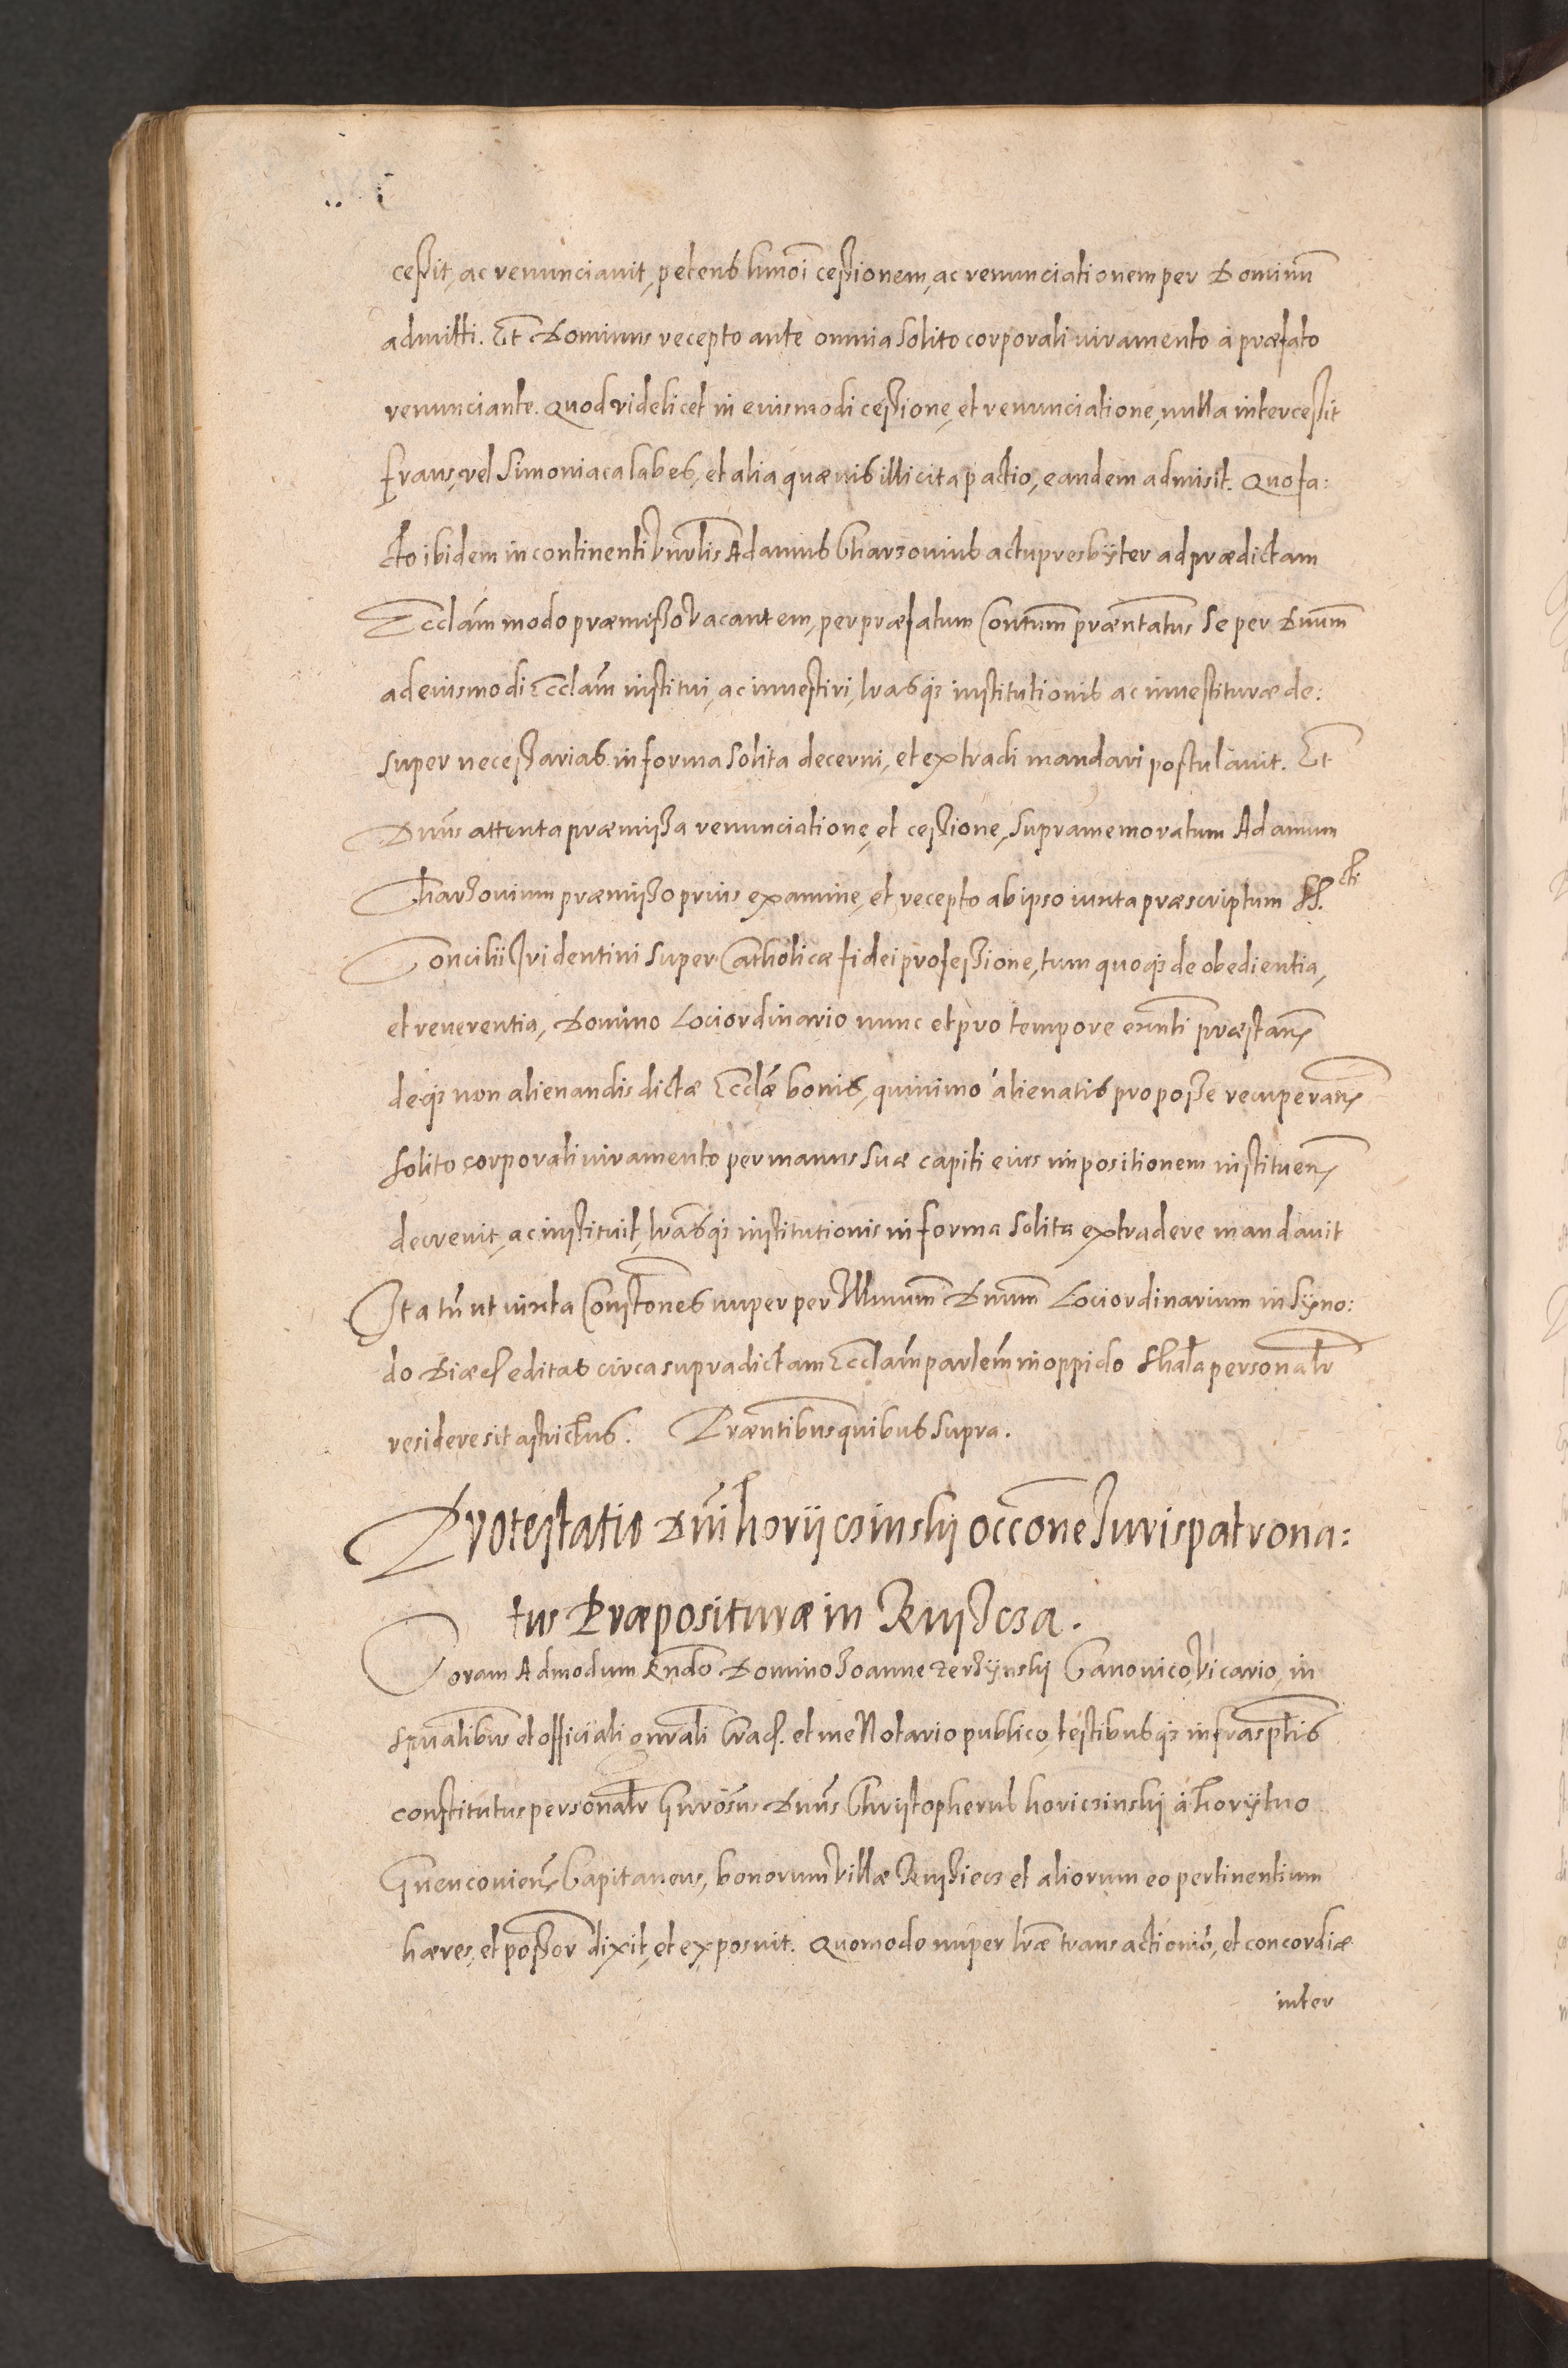 cessit, ac renunciauit, petens hmōi cessionem, ac renunciationem per Dominū
admitti. Et Dominus recepto ante omnia solito corporali iuramento à præfato
renunciante. Quod videlicet in eiusmodi cessione, et renunciatione, nulla intercessit
fraus, vel Simoniaca labes, et alia quæuis illicita pactio, eandem admisit. Quo fa:
cto ibidem in continenti Vnrlis Adamus Charzouius actu presbÿter ad prædictam
Ecclām modo præmisso vacantem, per præfatum Contum̄ præntatus se per Dnum̄
ad eiusmodi Ecclām institui, ac inuestiri, lras qꝫ institutionis ac inuestituræ de:
super necessarias in forma solita decerni, et extradi mandari postulauit. Et
Dnūs attenta præmissa renunciatione, et cessione, supramemoratum Adamum
Charzouium præmisso prius examine, et recepto ab ipso iuxta præscriptum SS.cti
Concilii Tridentini super Catholicæ fidei professione, tum quoqꝫ de obedientia,
et reuerentia, Domino Lociordinario nunc et pro tempore exn̄ti præstan̄
deqꝫ non alienandis dictæ Ecclǣ bonis, quinimo alienatis pro posse recuperan̄
solito corporali iuramento per manus suæ capiti eius impositionem instituen̄
decreuit, ac instituit, lrās qꝫ institutionis in forma solita extradere mandauit
Ita tn̄ ut iuxta Constōnes nuper per Illmum̄ Dnum̄ Lociordinarium in Sÿno:
do Diæc. editas circa supradictam Ecclām parlēm in oppido Skala personalr̄
residere sit astrictus. Præntibus quibus supra.
Protestatio Dn̄i horÿczinskij occōne Iuris patrona:
tus Præposituræ in Ruszcza.
Coram Admodum Rndō Domino Joanne Zerzÿnskÿ Canonico, Vicario, in
spūalibus et officiali gnrāli Crac. et me Notario publico, testibus qꝫ infrasp̄tis
constitutus personalr̄ Gnrōsus Dnūs Christopherus horiczinskÿ à horÿtno
Gnencouien̄ Capitaneus, bonorum Villæ Rusziecz et aliorum eo pertinentium
hæres, et possor̄ dixit, et exposuit. Quomodo nuper lrǣ transactionis, et concordiæ
inter